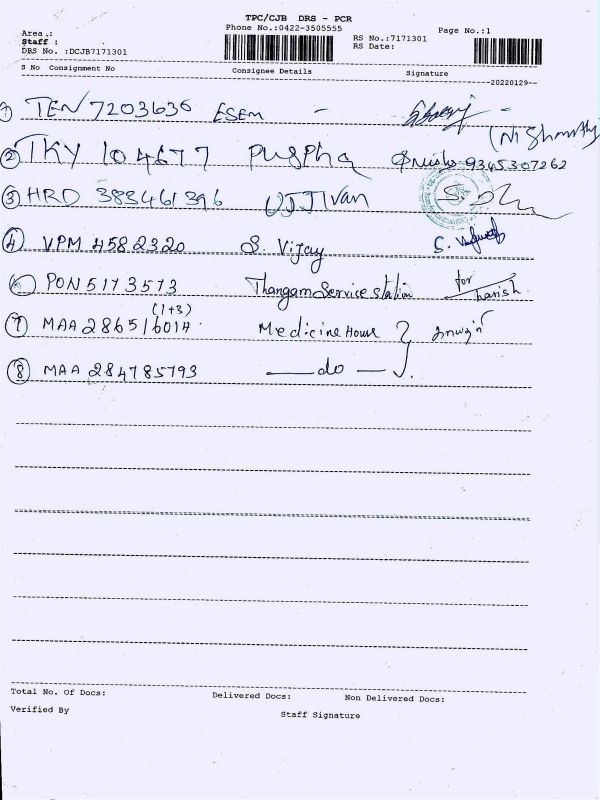 TPC/CJB DRS - PCR
Phone No.:0422-3505555
Area .:
Staff :
DRS No. :DCJB7171301
RS No.:7171301
RS Date:
Page No.:1
S No Consignment No Consignee Details Signature
--20220129--
1 TEN 7203636 ESEM -
(Nishanthy)
2 TKY 104677 Puspha 9345307262
3 HRD 383461396 UJJIvan
4 VPM 4582320 S. Vijay
PON 5173573 Thangam Service station for Harish
(1+3)
7 MAA 286516014 Medicine House
8 MAA 284785793 —do—
Total No. Of Docs: Delivered Docs: Non Delivered Docs:
Verified By Staff Signature